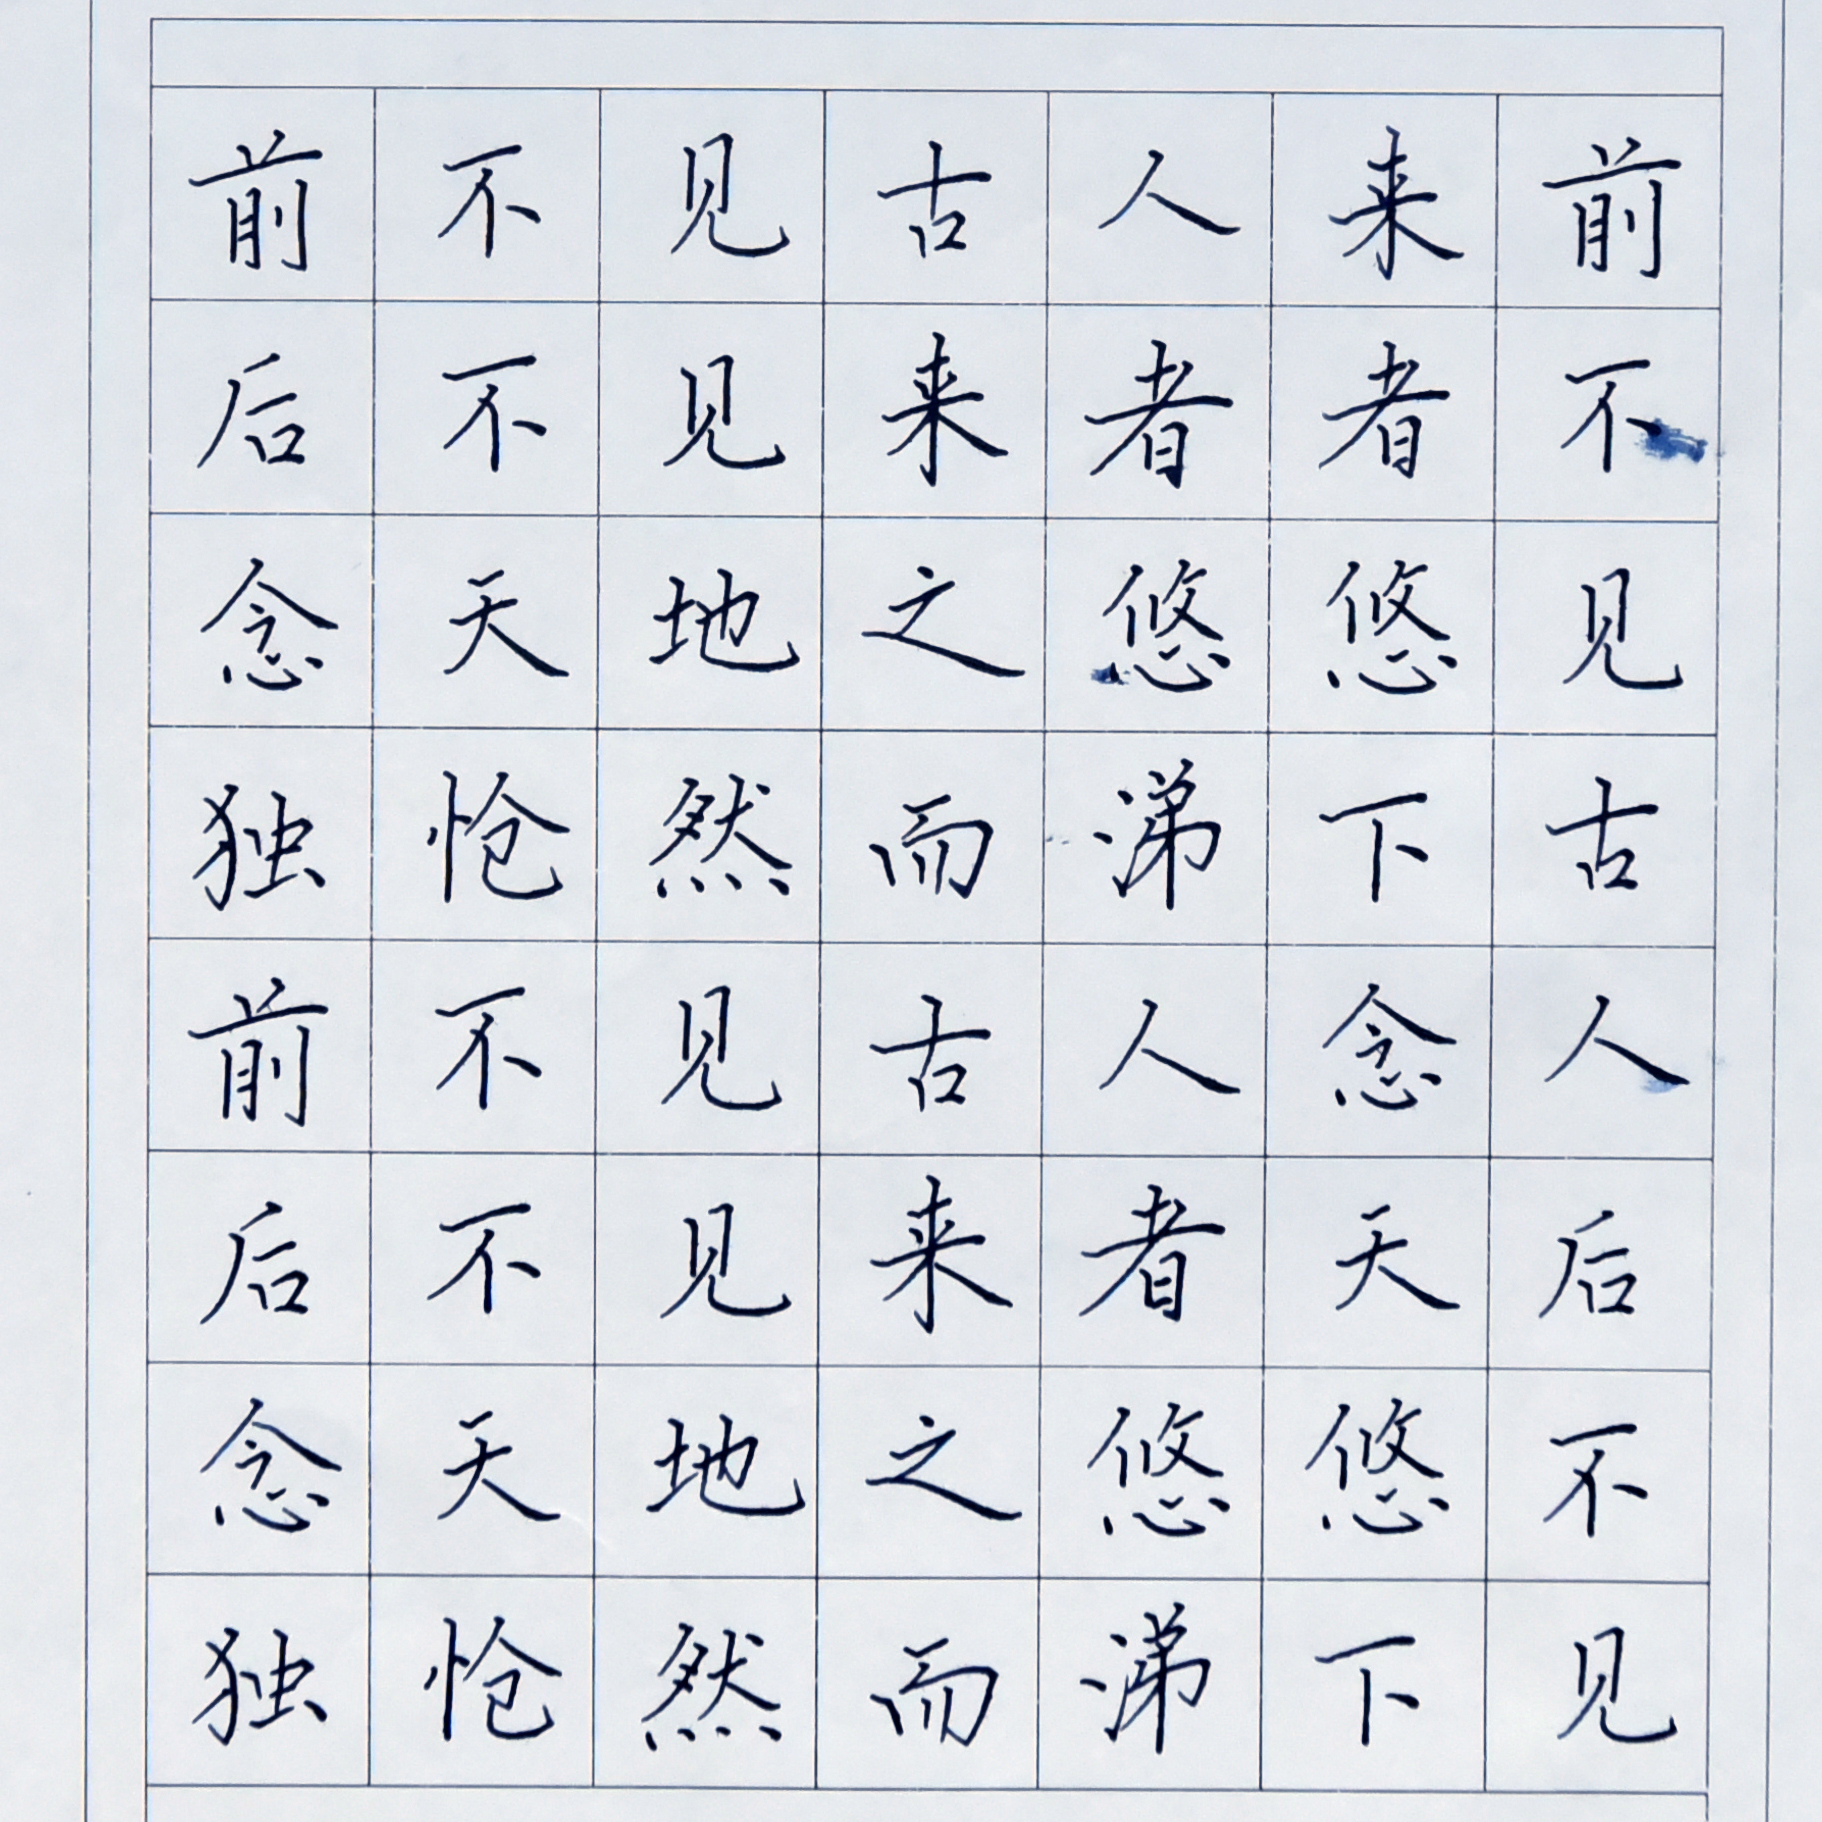 前不见古人来前
后不见来者者不
念天地之悠悠见
独怆然而涕下古
前不见古人念人
后不见来者天后
念天地之悠悠不
独怆然而涕下见